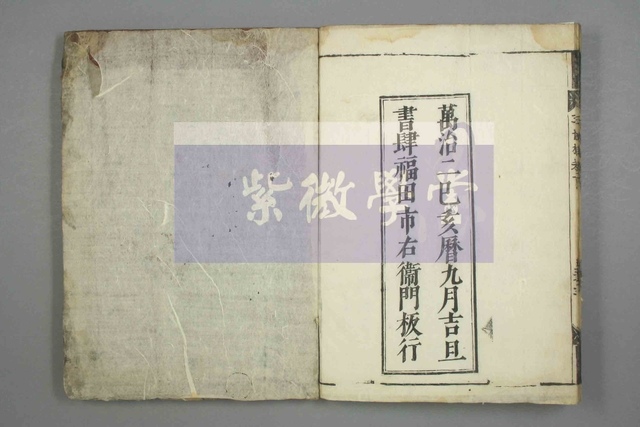 萬治二己亥暦九月吉旦
書肆福田市右衞門板行
紫微學堂